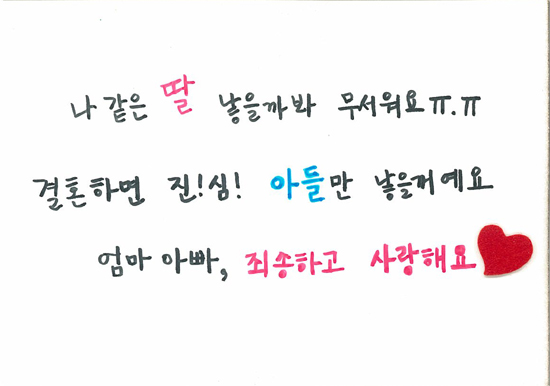 나 같은 딸 낳을까봐 무서워요ㅠ.ㅠ
결혼하면 진!심! 아들만 낳을꺼예요
엄마 아빠, 죄송하고 사랑해요